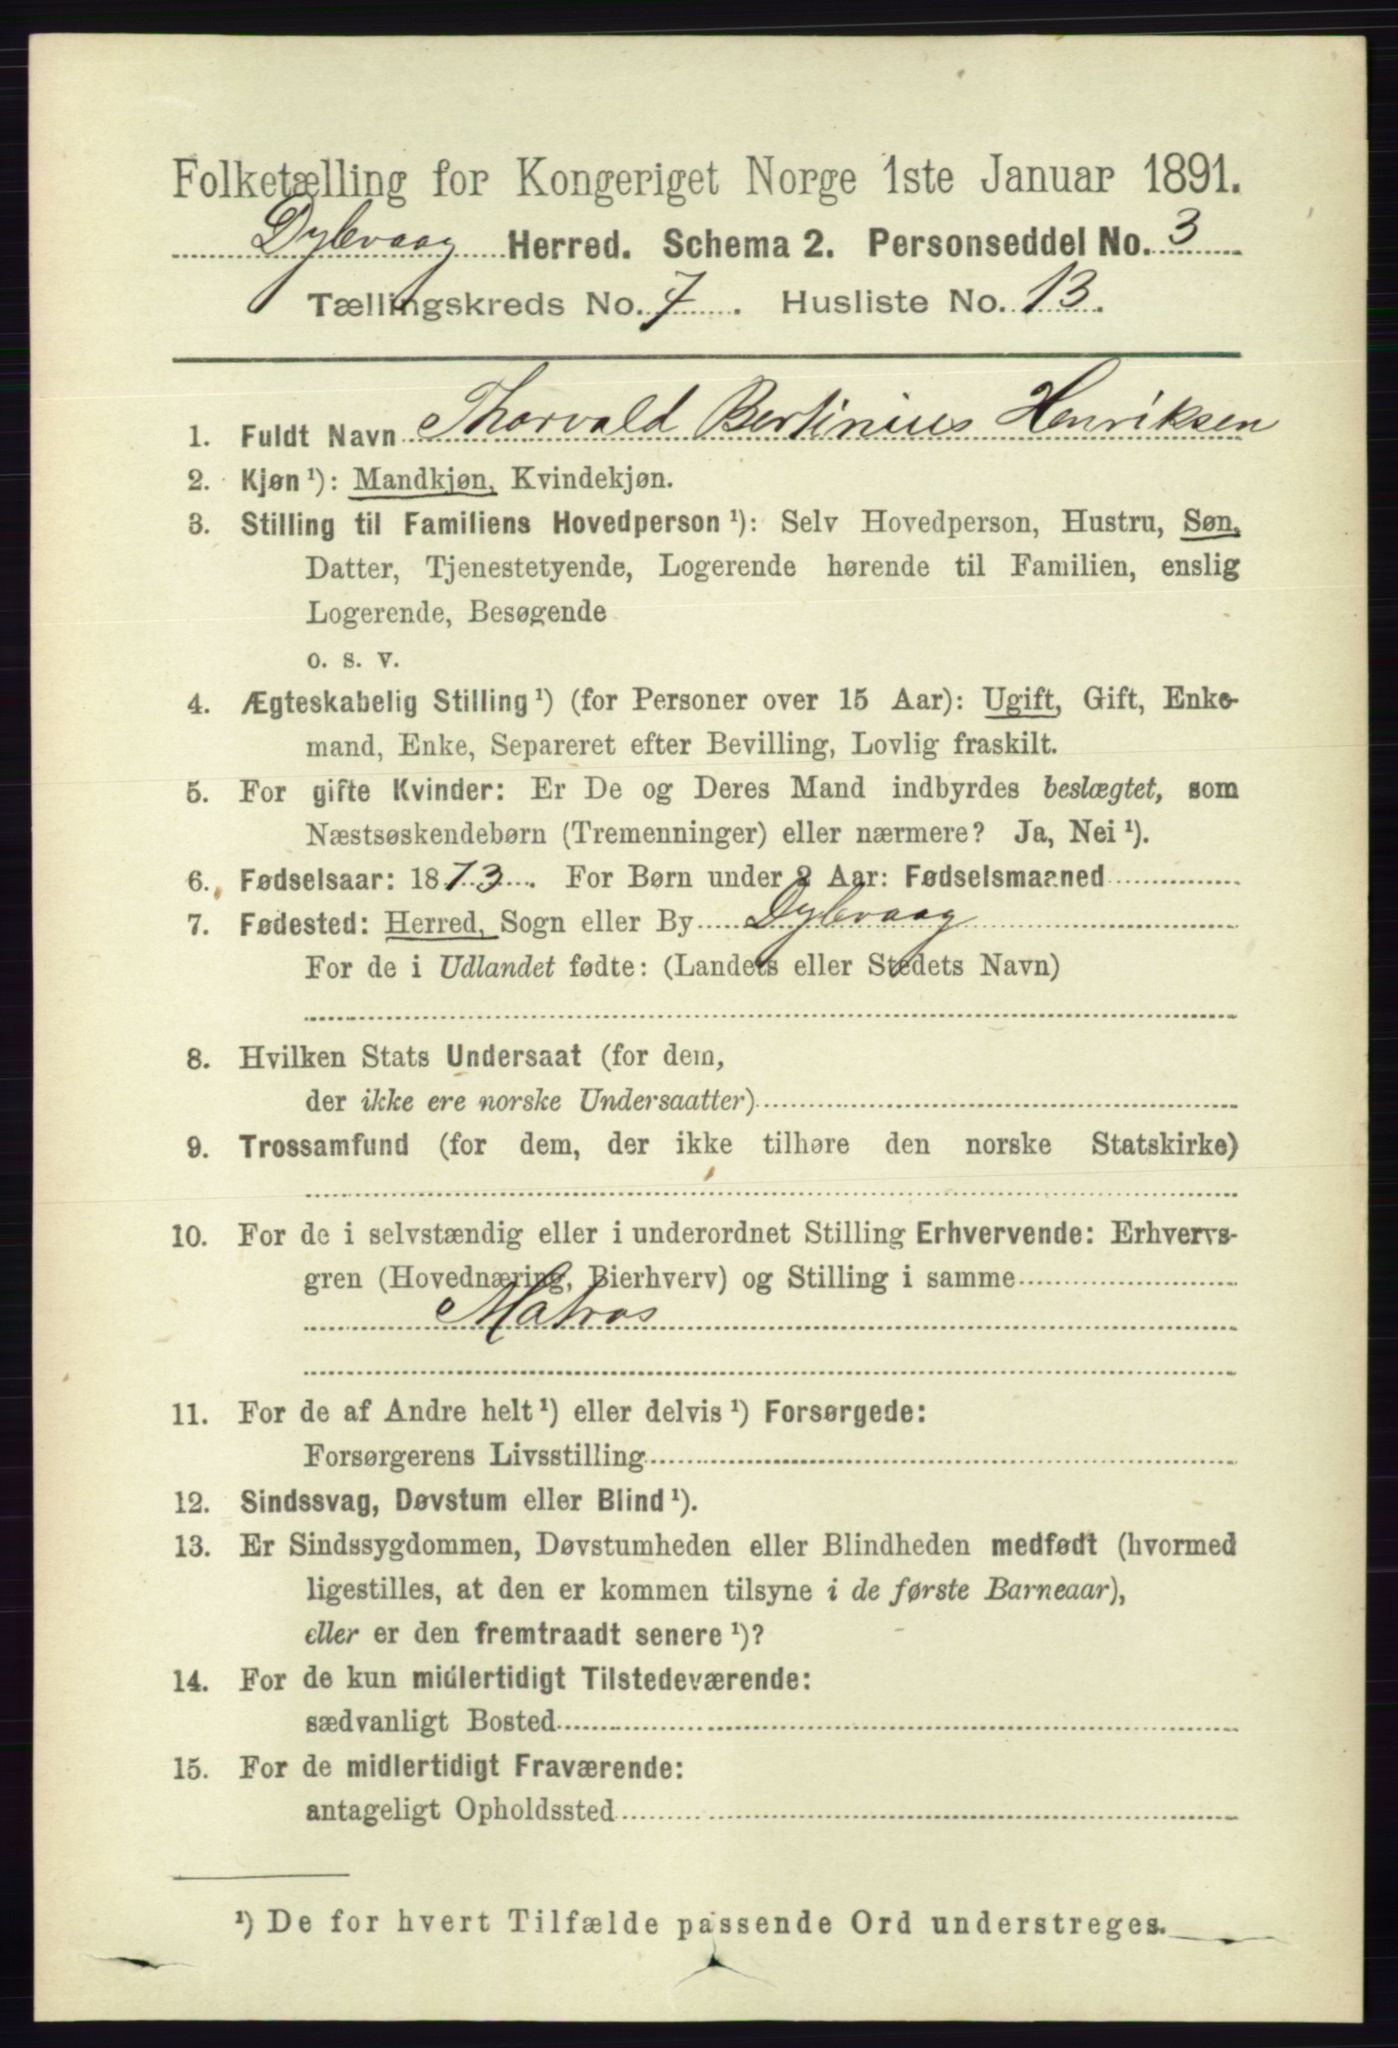 Folketælling for Kongeriget Norge 1ste Januar 1891.
Dybvaag Herred. Schema 2. Personseddel No. 3
Tællingskreds No. 7. Husliste No. 13.
1. Fuldt Navn Thorvald Bertinius Henriksen
2. Kjøn ¹): Mandkjøn, Kvindekjøn.
3. Stilling til Familiens Hovedperson ¹): Selv Hovedperson, Hustru, Søn,
Datter, Tjenestetyende, Logerende hørende til Familien, enslig
Logerende, Besøgende
o. s. v.
4. Ægteskabelig Stilling ¹) (for Personer over 15 Aar): Ugift, Gift, Enke-
mand, Enke, Separeret efter Bevilling, Lovlig fraskilt.
5. For gifte Kvinder: Er De og Deres Mand indbyrdes beslægtet, som
Næstsøskendebørn (Tremenninger) eller nærmere? Ja, Nei ¹).
6. Fødselsaar: 1873. For Børn under 2 Aar: Fødselsmaaned
7. Fødested: Herred, Sogn eller By Dybvaag
For de i Udlandet fødte: (Landets eller Stedets Navn)
8. Hvilken Stats Undersaat (for dem,
der ikke ere norske Undersaatter)
9. Trossamfund (for dem, der ikke tilhøre den norske Statskirke)
10. For de i selvstændig eller i underordnet Stilling Erhvervende: Erhvervs-
gren (Hovednæring, Bierhverv) og Stilling i samme
Matros
11. For de af Andre helt ¹) eller delvis ¹) Forsørgede:
Forsørgerens Livsstilling
12. Sindssvag, Døvstum eller Blind ¹).
13. Er Sindssygdommen, Døvstumheden eller Blindheden medfødt (hvormed
ligestilles, at den er kommen tilsyne i de første Barneaar),
eller er den fremtraadt senere ¹)?
14. For de kun midlertidigt Tilstedeværende:
sædvanligt Bosted
15. For de midlertidigt Fraværende:
antageligt Opholdssted
¹) De for hvert Tilfælde passende Ord understreges.